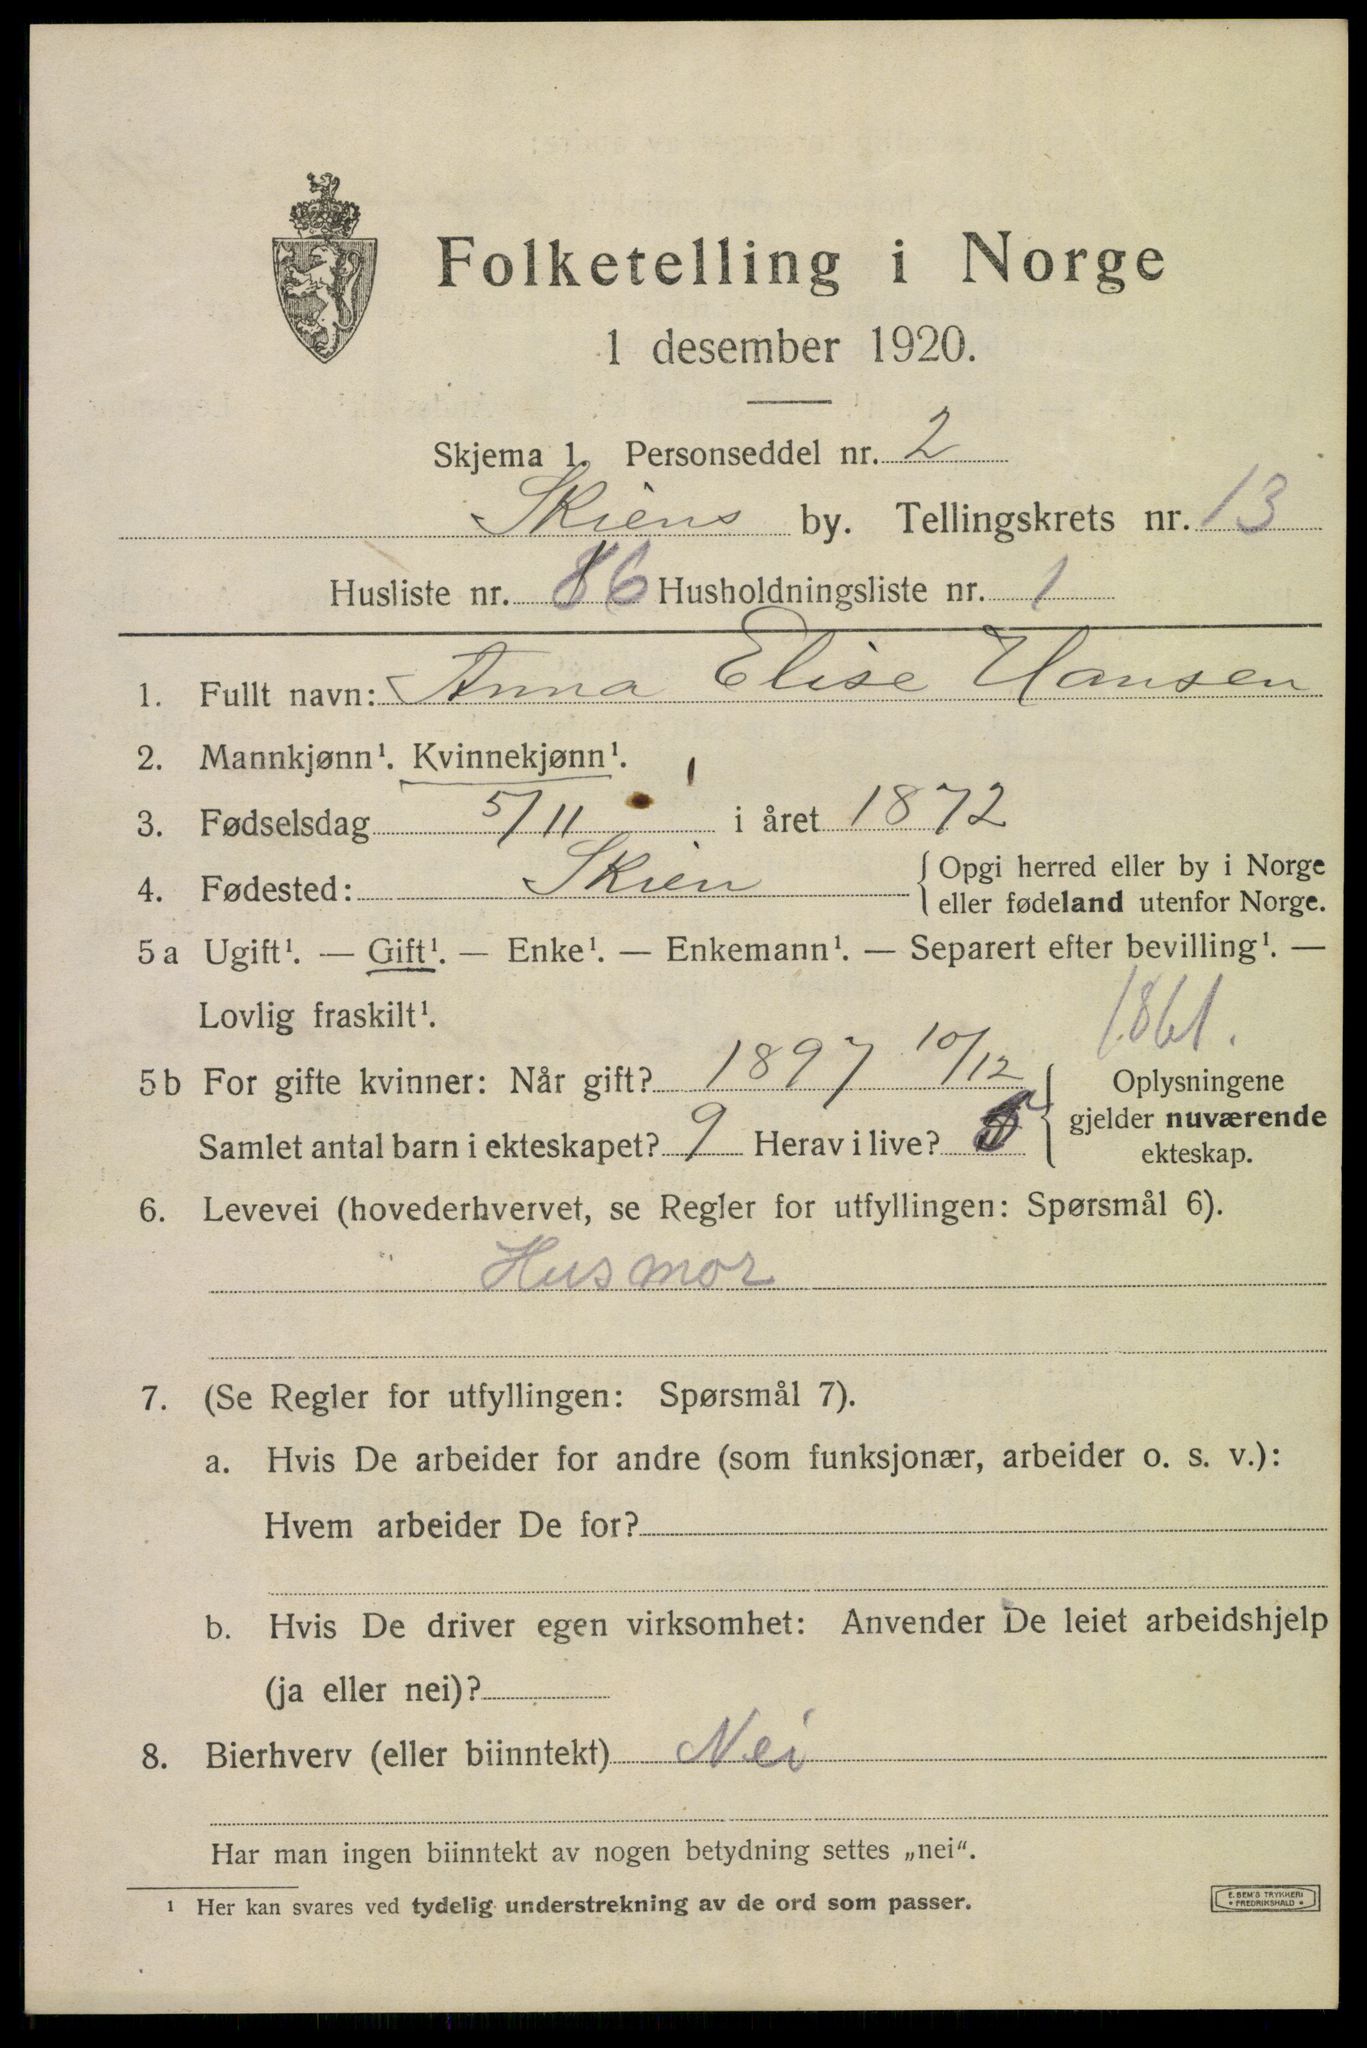 Folketelling i Norge
1 desember 1920.
Skjema 1. Personseddel nr. 2
Skiens by. Tellingskrets nr. 13
Husliste nr. 86 Husholdningsliste nr. 1
1. Fullt navn: Anna Elise Hansen
2. Mannkjønn¹. Kvinnekjønn¹.
3. Fødselsdag 5/11 i året 1872
4. Fødested: Skien { Opgi herred eller by i Norge
eller fødeland utenfor Norge.
5 a Ugift¹. — Gift¹. — Enke¹. — Enkemann¹. — Separert efter bevilling¹. —
Lovlig fraskilt¹.
1861.
5 b For gifte kvinner: Når gift? 1897 10/12
Samlet antal barn i ekteskapet? 9 Herav i live?
{ Oplysningene
gjelder nuværende
ekteskap.
6. Levevei (hovederhvervet, se Regler for utfyllingen: Spørsmål 6).
Husmor
7. (Se Regler for utfyllingen: Spørsmål 7).
a. Hvis De arbeider for andre (som funksjonær, arbeider o. s. v.):
Hvem arbeider De for?
b. Hvis De driver egen virksomhet: Anvender De leiet arbeidshjelp
(ja eller nei)?
8. Bierhverv (eller biinntekt) Nei
Har man ingen biinntekt av nogen betydning settes „nei“.
¹ Her kan svares ved tydelig understrekning av de ord som passer.
E. SEM'S TRYKKERI
* FREDRIKSHALD *